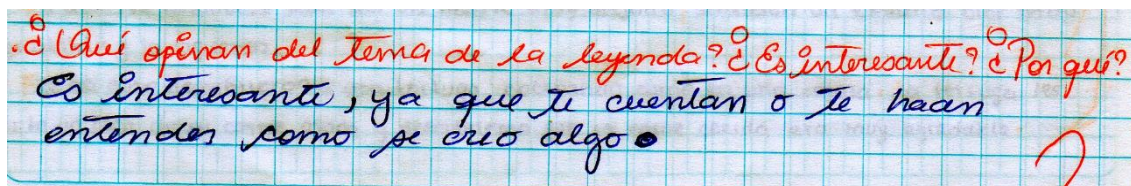 .¿Qué opinan del tema de la leyenda? ¿Es interesante? ¿Por qué?
Es interesante, ya que te cuentan o te hacen
entender como se creo algo.